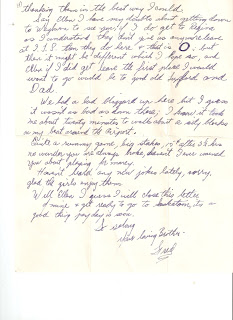 thanking them in the best way I could.
Say Ellen I have my doubts about getting down
to Regina to see you if I do get to Regina
as I understand they don't give us any more leave
at I.T.S. than they do here so that is O, but
then it might be different which I hope so, and
Ellen if I did get leave the first place I would
want to go would be to good old and
Dad.
We had a bad blizzard up here but I guess
it wasn't as bad as down there; I know it took
me about twenty minutes to walk about a city blocks
my best around the Airport.
Quite a rummy game, big stakes, after it's
no wonder you are always broke, haven't I ever warned
you about playing for money.
Haven't heard any new jokes lately, sorry,
glad the girls enjoy them.
Well Ellen I guess I will close this letter
of mine & get ready to go to Saskatoon, its a
good thing pay day is soon.
So solong
Your loving Brother
Fred